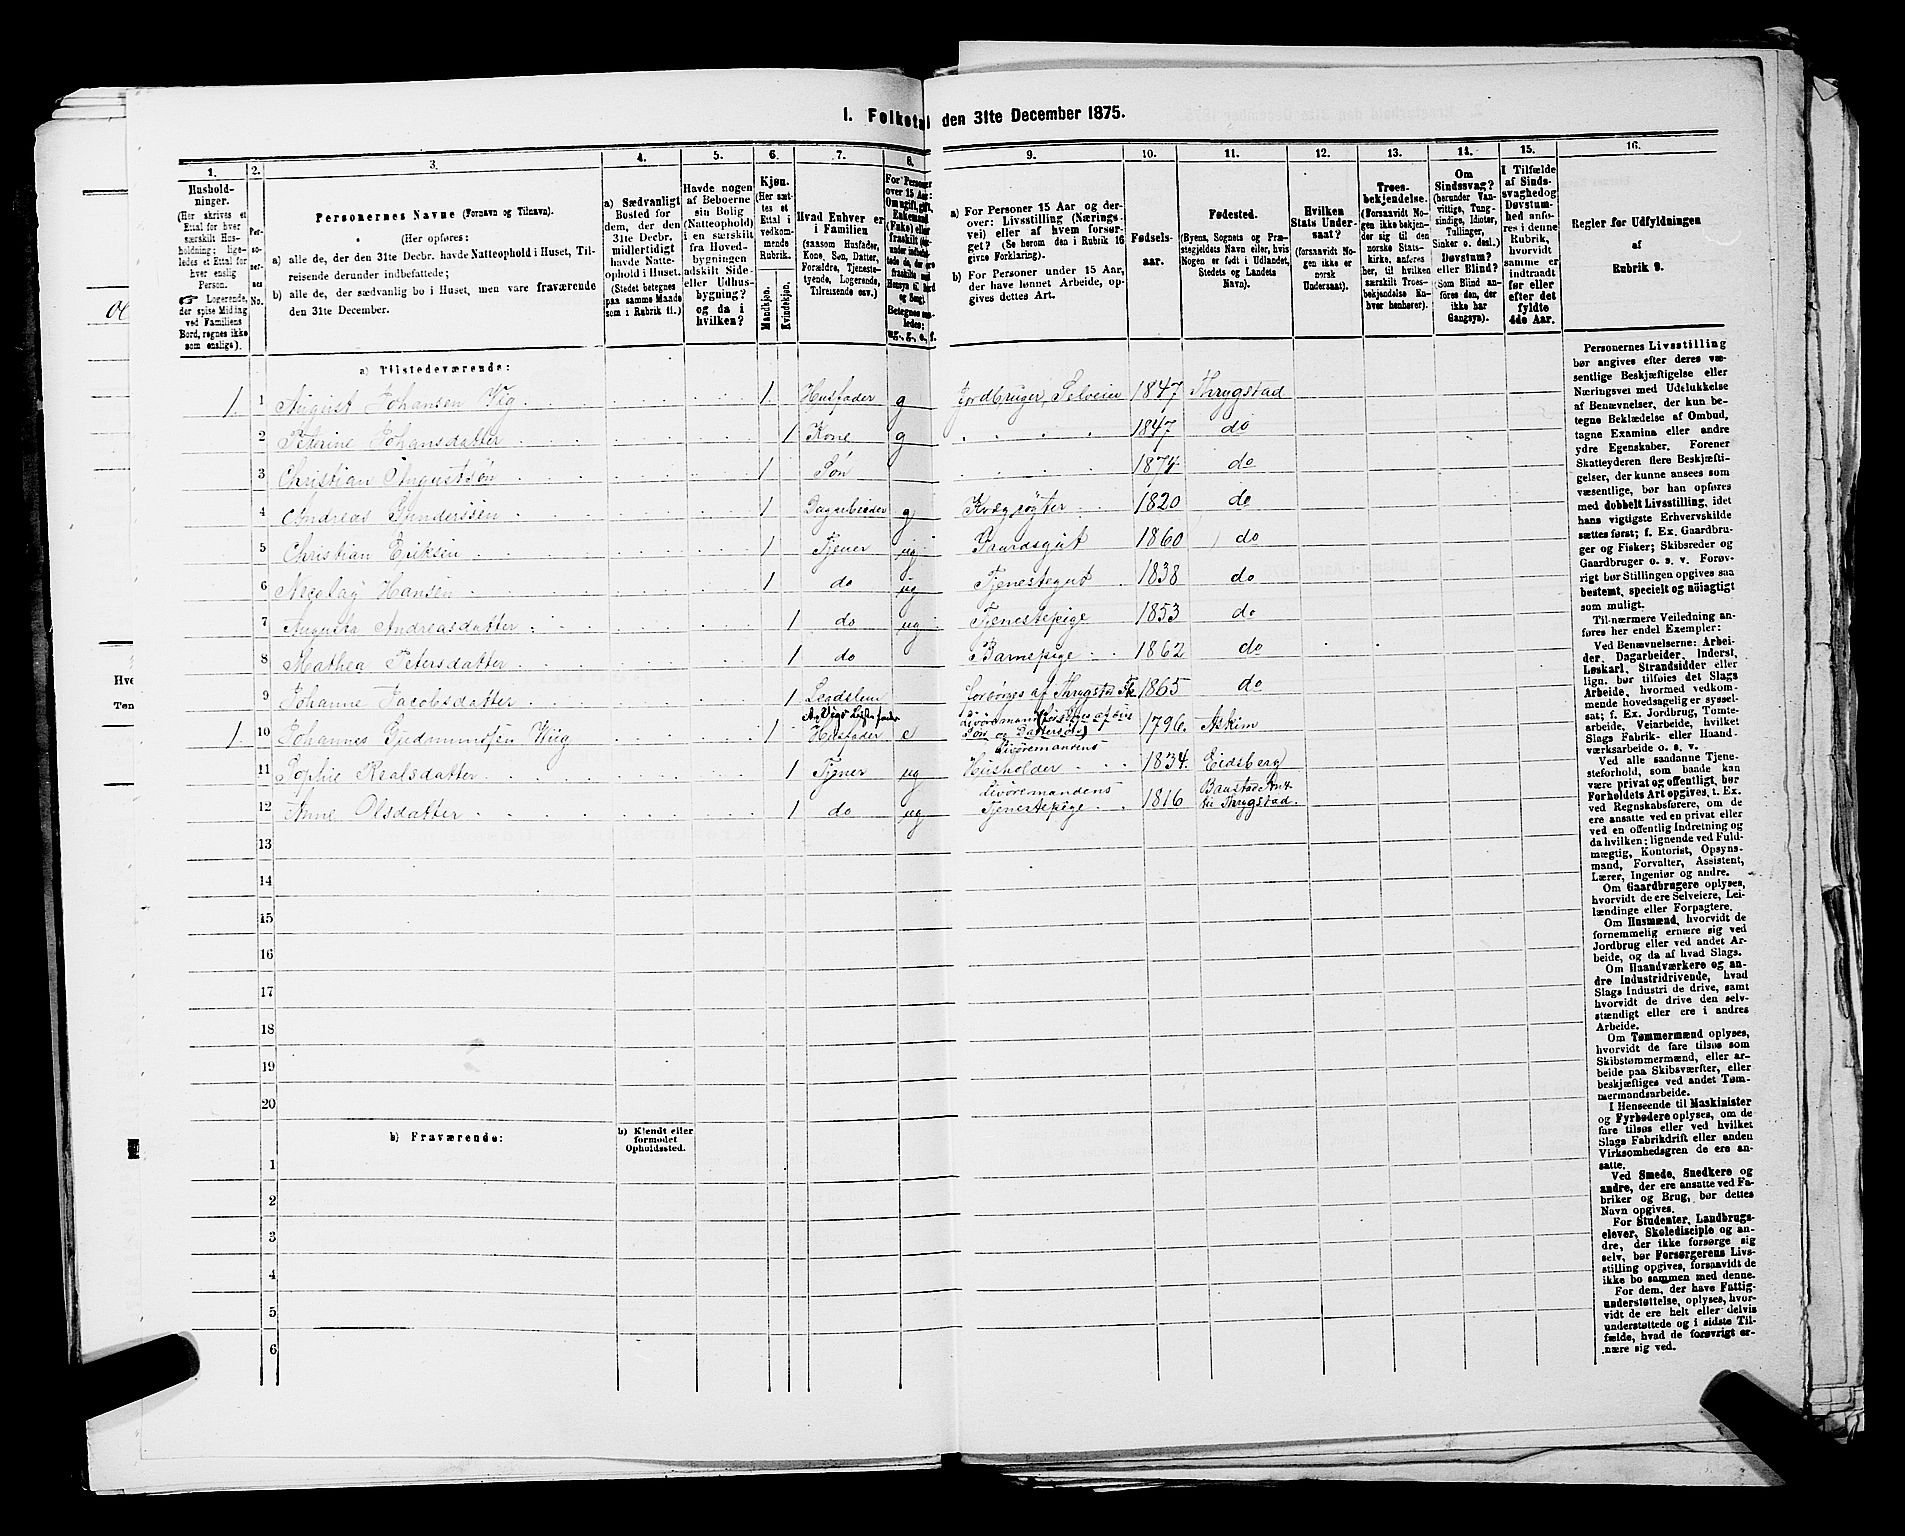 I. Folketal den 31te December 1875.
1. 2. 3. 4. 5. 6. 7. 8. 9. 10. 11. 12. 13. 14. 15. 16.
Husholdninger.
(Her skrives et
Ettal for hver
særskilt Husholdning;
ligeledes et Ettal for
hver enslig
Person.
☞ Logerende,
der spise Middag
ved Familiens
Bord, regnes ikke
som enslige).
Personernes No.
Personernes Navne (Fornavn og Tilnavn).
(Her opføres:
a) alle de, der den 31te Decbr. havde Natteophold i Huset, Tilreisende derunder indbefattede;
b) alle de, der sædvanlig bo i Huset, men vare fraværende
den 31te December.
a) Sædvanligt
Bosted for
dem, der den
31te Decbr.
midlertidigt
havde Natteophold i Huset.
(Stedet betegnes
paa samme Maade
som i Rubrik 11.)
Havde nogen
af Beboerne
sin Bolig
(Natteophold)
i en særskilt
fra Hovedbygningen
adskilt Side-
eller Udhusbygning?
og da i
hvilken?
Kjøn.
(Her sættes et
Ettal i
vedkommende
Rubrik.
Mandkjøn.
Kvindekjøn.
Hvad Enhver er
i Familien
(saasom Husfader,
Kone, Søn, Datter,
Forældre, Tjenestetyende, Logerende,
Tilreisende osv.)
For Personer
over 15 Aar:
Om ugift, gift,
Enkemand
(Enke) eller
fraskilt
Betegnes saaledes:
ug., g., e., f.
a) For Personer 15 Aar og derover: Livsstilling (Næringsvei) eller af hvem forsørget? (Se herom den i Rubrik 16
givne Forklaring).
b) For Personer under 15 Aar,
der have lønnet Arbeide, opgives dettes Art.
Fødselsaar.
Fødested.
(Byens, Sognets og Præstegjeldets Navn eller, hvis
Nogen er født i Udlandet,
Stedets og Landets
Navn).
Hvilken
Stats Undersaat?
(forsaavidt Nogen ikke er
norsk
Undersaat).
Troesbekjendelse.
(Forsaavidt Nogen ikke bekjender sig til den
norske Statskirke, anføres
her, til hvilken
særskilt Troesbekjendelse Enhver henhører).
Om
Sindssvag?
(herunder Vanvittige, Tungsindige, Idioter,
Tullinger,
Sinker o. desl.)
Døvstum?
eller Blind?
(Som Blind anføres den, der
ikke har
Gangsyn).
I Tilfælde
af Sindssvaghed og
Døvstumhed anføres i denne
Rubrik,
hvorvidt
samme er
indtraadt
før eller
efter det
fyldte
4de Aar.
Regler for Udfyldningen
af
Rubrik 9.
a) Tilstedeværende:
1. 1 August Johansen Wiig 1. Husfader g Jordbruger, Selveier 1847 Thrygstad
2 Petrine Johansdatter 1 Kone g 1847 do
3 Christian Augustsøn 1 Søn 1874 do
4 Andreas Gunderssen 1 Dagarbieder g Kvægrögter 1820 do
5 Christian Eriksen 1 Tjener ug Gaardsgut 1860 do
6 Nicolay Hansen 1 do ug Tjenestegut 1838 do
7 Augusta Andreasdatter 1 do ug Tjenestepige 1853 do
8 Mathea Petersdatter 1 do Barnepige 1862 do
9 Johanne Jacobsdatter 1 Lægdslem forsörges af Thrygstad Fk 1865 do
1 10 Johannes Gudmundsen Wiig 1 Husfader e 1796. Askim
11 Sophie Kralsdatter 1 Tjener ug Livöremandens Husholder 1834. Eidsberg
12 Anne Olsdatter 1 do ug Livöremandens Tjenestepige 1816 til Thrygstad.
13
14
15
16
17
18
19
20
b) Fraværende:
b) Kjendt eller
formodet
Opholdssted.
1
2
3
4
5
6
Personernes Livsstilling
bør angives efter deres væsentlige Beskjæftigelse eller
Næringsvei med Udelukkelse
af Benævnelser, der kun betegne Beklædelse af Ombud,
tagne Examina eller andre
ydre Egenskaber. Forener
Skatteyderen flere Beskjæftigelser, der kunne ansees som
væsentlige, bør han opføres
med dobbelt Livsstilling, idet
hans vigtigste Erhvervskilde
sættes først; f. Ex. Gaardbruger og Fisker; Skibsreder og
Gaardbruger o. s. v. Forøvrigt bør Stillingen opgives saa
bestemt, specielt og nöiagtigt
som muligt.
Til nærmere Veiledning anføres her endel Exempler:
Ved Benævnelserne: Arbeider, Dagarbeider, Inderst,
Løskarl, Strandsidder eller
lign. bør tilføies det Slags
Arbeide, hvormed vedkommende hovedsagelig er sysselsat; f. Ex. Jordbrug, Tømtearbeide, Veiarbeide, hvilket
Slags Fabrik- eller Haandværksarbeide o. s. v.
Ved alle saadanne Tjenesteforhold, som baade kan
være privat og offentligt, bør
Forholdets Art opgives, f. Ex.
ved Regnskabsførere, om de
ere ansatte ved en privat eller
ved en offentlig Indretning og
da hvilken; lignende ved Fuldmægtig, Kontorist, Opsynsmand, Forvalter, Assistent,
Lærer, Ingeniør og andre.
Om Gaardbrugere oplyses,
hvorvidt de ere Selveiere, Leilændinge eller Forpagtere.
Om Husmænd, hvorvidt de
fornemmelig ernære sig ved
Jordbrug eller ved andet Arbeide, og da af hvad Slags.
Om Haandværkere og andre Industridrivende, hvad
Slags Industri de drive, samt
hvorvidt de drive den selvstændigt eller ere i andres
Arbeide.
Om Tømmermænd oplyses,
hvorvidt de fare tilsøs som
Skibstømmermænd, eller arbeide paa Skibsværfter, eller
beskjæftiges ved andet Tømmermandsarbeide.
I Henseende til Maskinister
og Fyrbødere oplyses, om de
fare tilsøs eller ved hvilket
Slags Fabrikdrift eller anden
Virksomhedsgren de ere ansatte.
Ved Smede, Snedkere og
andre, der ere ansatte ved Fabriker og Brug, bør dettes
Navn opgives.
For Studenter, Landbrugselever, Skoledisciple og andre, der ikke forsørge sig
selv, bør Forsørgerens Livsstilling opgives, forsaavidt de
ikke bo sammen med denne.
For dem, der have Fattigunderstøttelse, oplyses, hvorvidt de ere helt eller delvis
understøttede og i sidste Tilfælde, hvad de forøvrigt ernære sig ved.